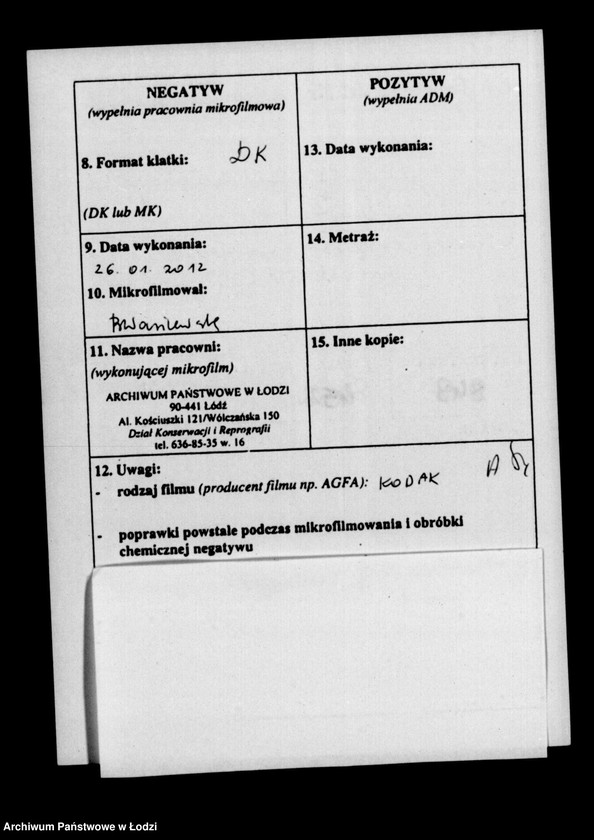 NEGATYW
(wypełnia pracownia mikrofilmowa)
8. Format klatki: DK
(DK lub MK)
POZYTYW
(wypełnia ADM)
13. Data wykonania:
9. Data wykonania:
26. 01. 2012
10. Mikrofilmował:
14. Metraż:
11. Nazwa pracowni:
(wykonującej mikrofilm)
ARCHIWUM PAŃSTWOWE W ŁODZI
90-441 Łódź
Al. Kościuszki 121/Wólczańska 150
Dział Konserwacji i Reprografii
tel. 636-85-35 w. 16
15. Inne kopie:
12. Uwagi:
- rodzaj filmu (producent filmu np. AGFA): KODAK
- poprawki powstałe podczas mikrofilmowania i obróbki
chemicznej negatywu
Archiwum Państwowe w Łodzi